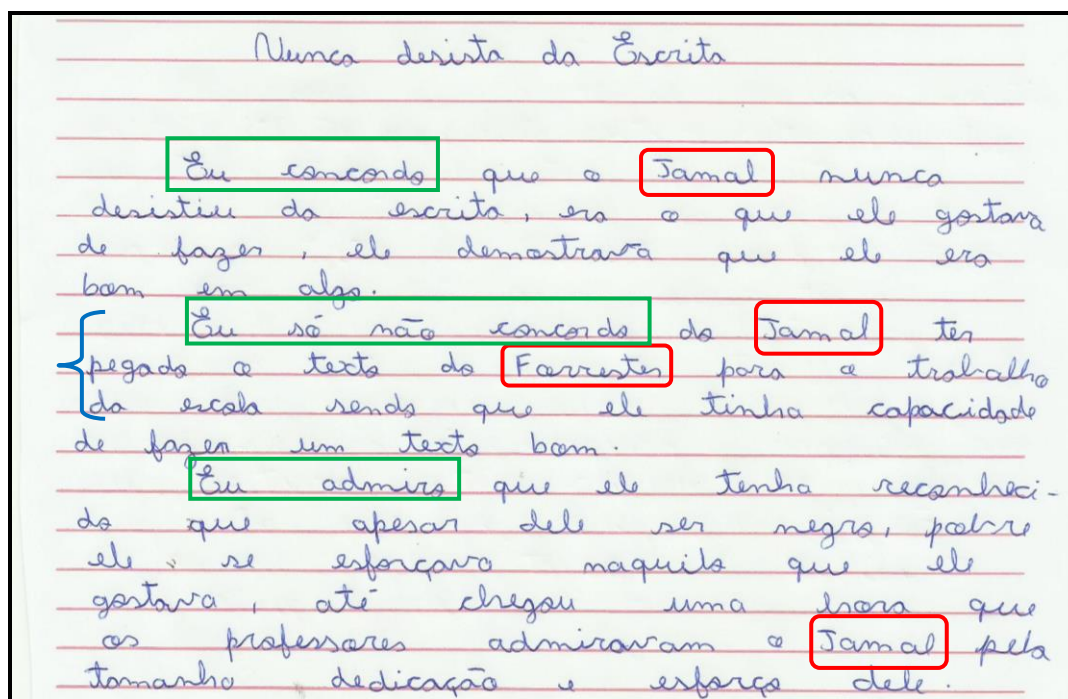 Nunca desista da Escrita
Eu concordo que o Jamal nunca
desistiu da escrita, era o que ele gostava
de fazer, ele demostrava que ele era
bom em algo.
Eu só não concordo do Jamal ter
pegado o texto do Forrester para o trabalho
da escola sendo que ele tinha capacidade
de fazer um texto bom.
Eu admiro que ele tenha reconheci-
do que apesar dele ser negro, pobre
ele se esforçava naquilo que ele
gostava, até chegou uma hora que
os professores admiravam o Jamal pelo
tamanho dedicação e esforço dele.